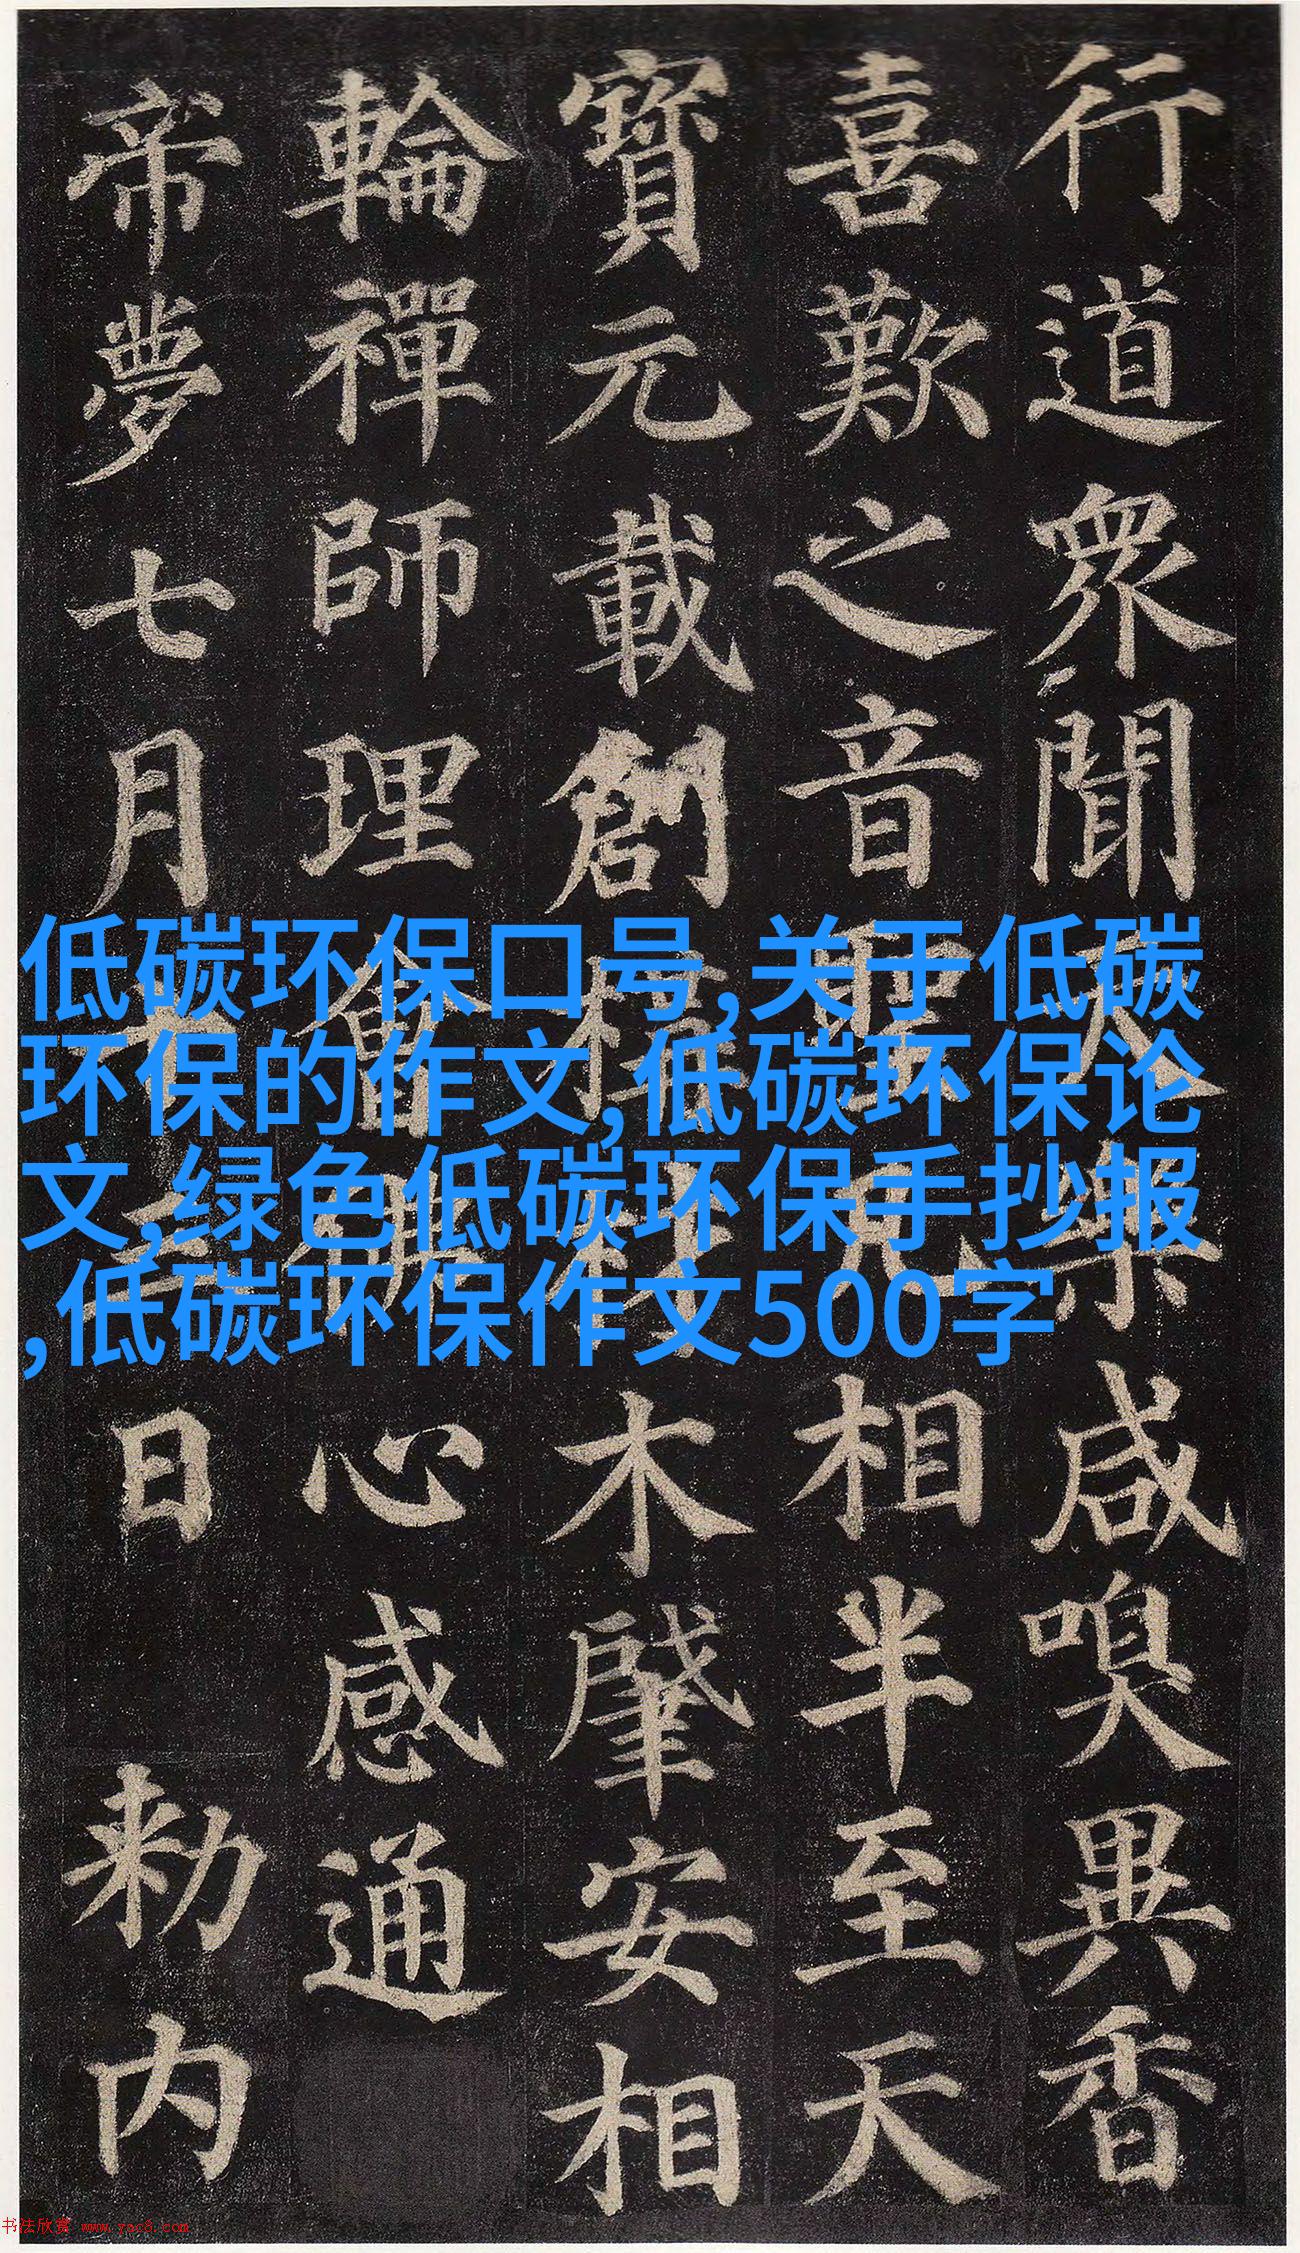 行道衆聞天樂咸嗅異香
喜歎之音聖凡相半至天
寶元載創構材木肇安相
輪禪師理會佛心感通
帝夢七月十三日 勅内
低碳环保口号,关于低碳
环保的作文,低碳环保论
文,绿色低碳环保手抄报
,低碳环保作文500字
书法欣赏 www.yac8.com